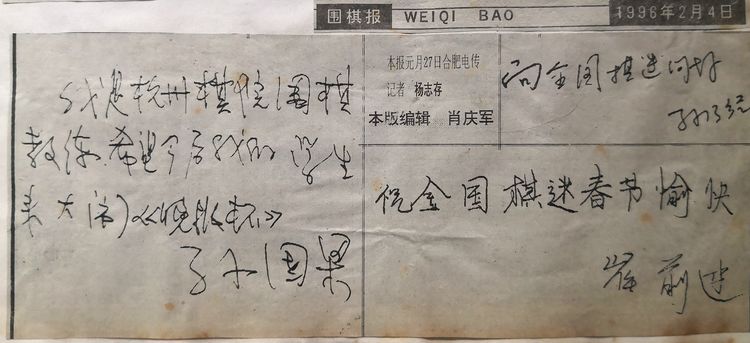 围棋报 WEIQI BAO 1996年2月4日
我是杭州棋院围棋
教练.希望今后我的学生
来大闹《晚报杯》
孙国梁
本报元月27日合肥电传
记者 杨志存
本版编辑 肖庆军
向全国棋迷问好
祝全国棋迷春节愉快
崔前进